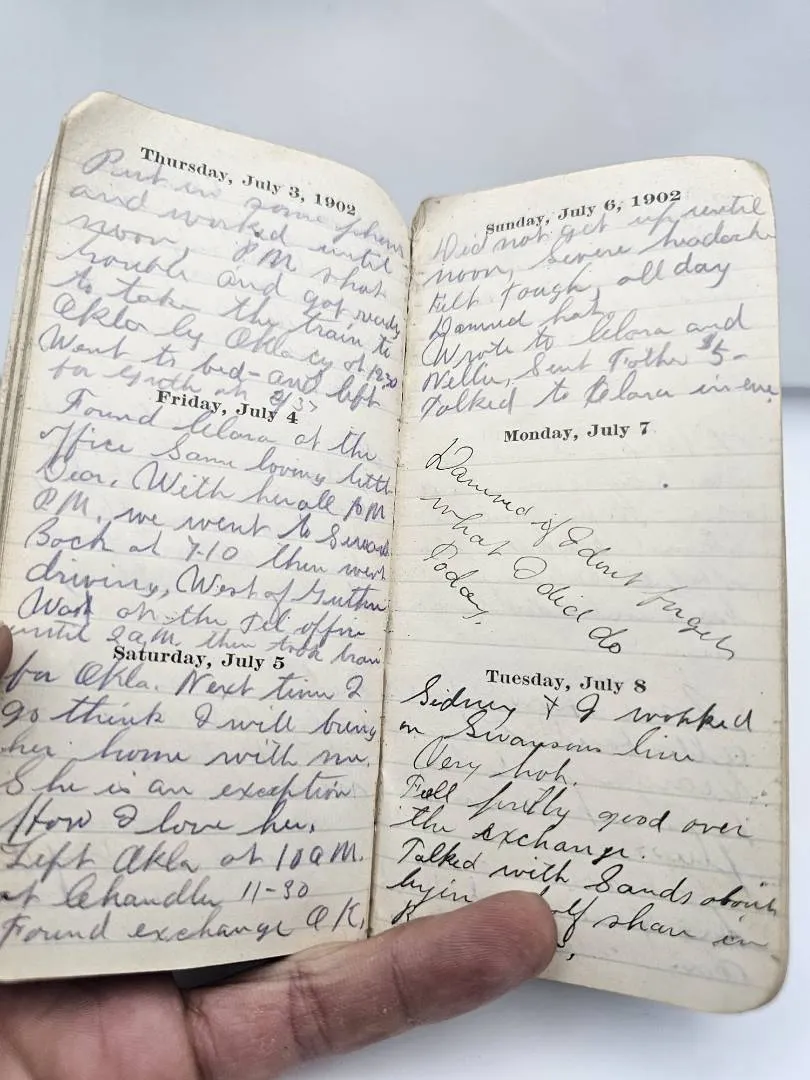 Thursday, July 3, 1902
Put in some phones
and worked until
noon, PM shot
trouble and got ready
to take the train to
Okla by Okla cy at 12-30
Went to bed - and left
for Guth at
Friday, July 4
Found Clara at the
office Same loving little
Dear, With her all PM
PM, we went to
Back at 7-10 then went
driving, West of Guthrie
Was at the Tel office
until 2 am, then took train
Saturday, July 5
for Okla. Next time I
go think I will bring
her home with me.
She is an exception
How I love her.
Left Okla at 10 AM.
at Chandler 11-30
Found exchange O K,
Sunday, July 6, 1902
Did not get up until
noon, severe headache
Felt tough, all day
Damned hot,
Wrote to Clara and
Nellie, Sent Father $5-
Talked to Clara in eve
Monday, July 7
Damned if I dont forget
what I did do
Today.
Tuesday, July 8
Sidney & I worked
on Swansons line
Very hot.
Feel pretty good over
the exchange.
Talked with Sands about
half share in